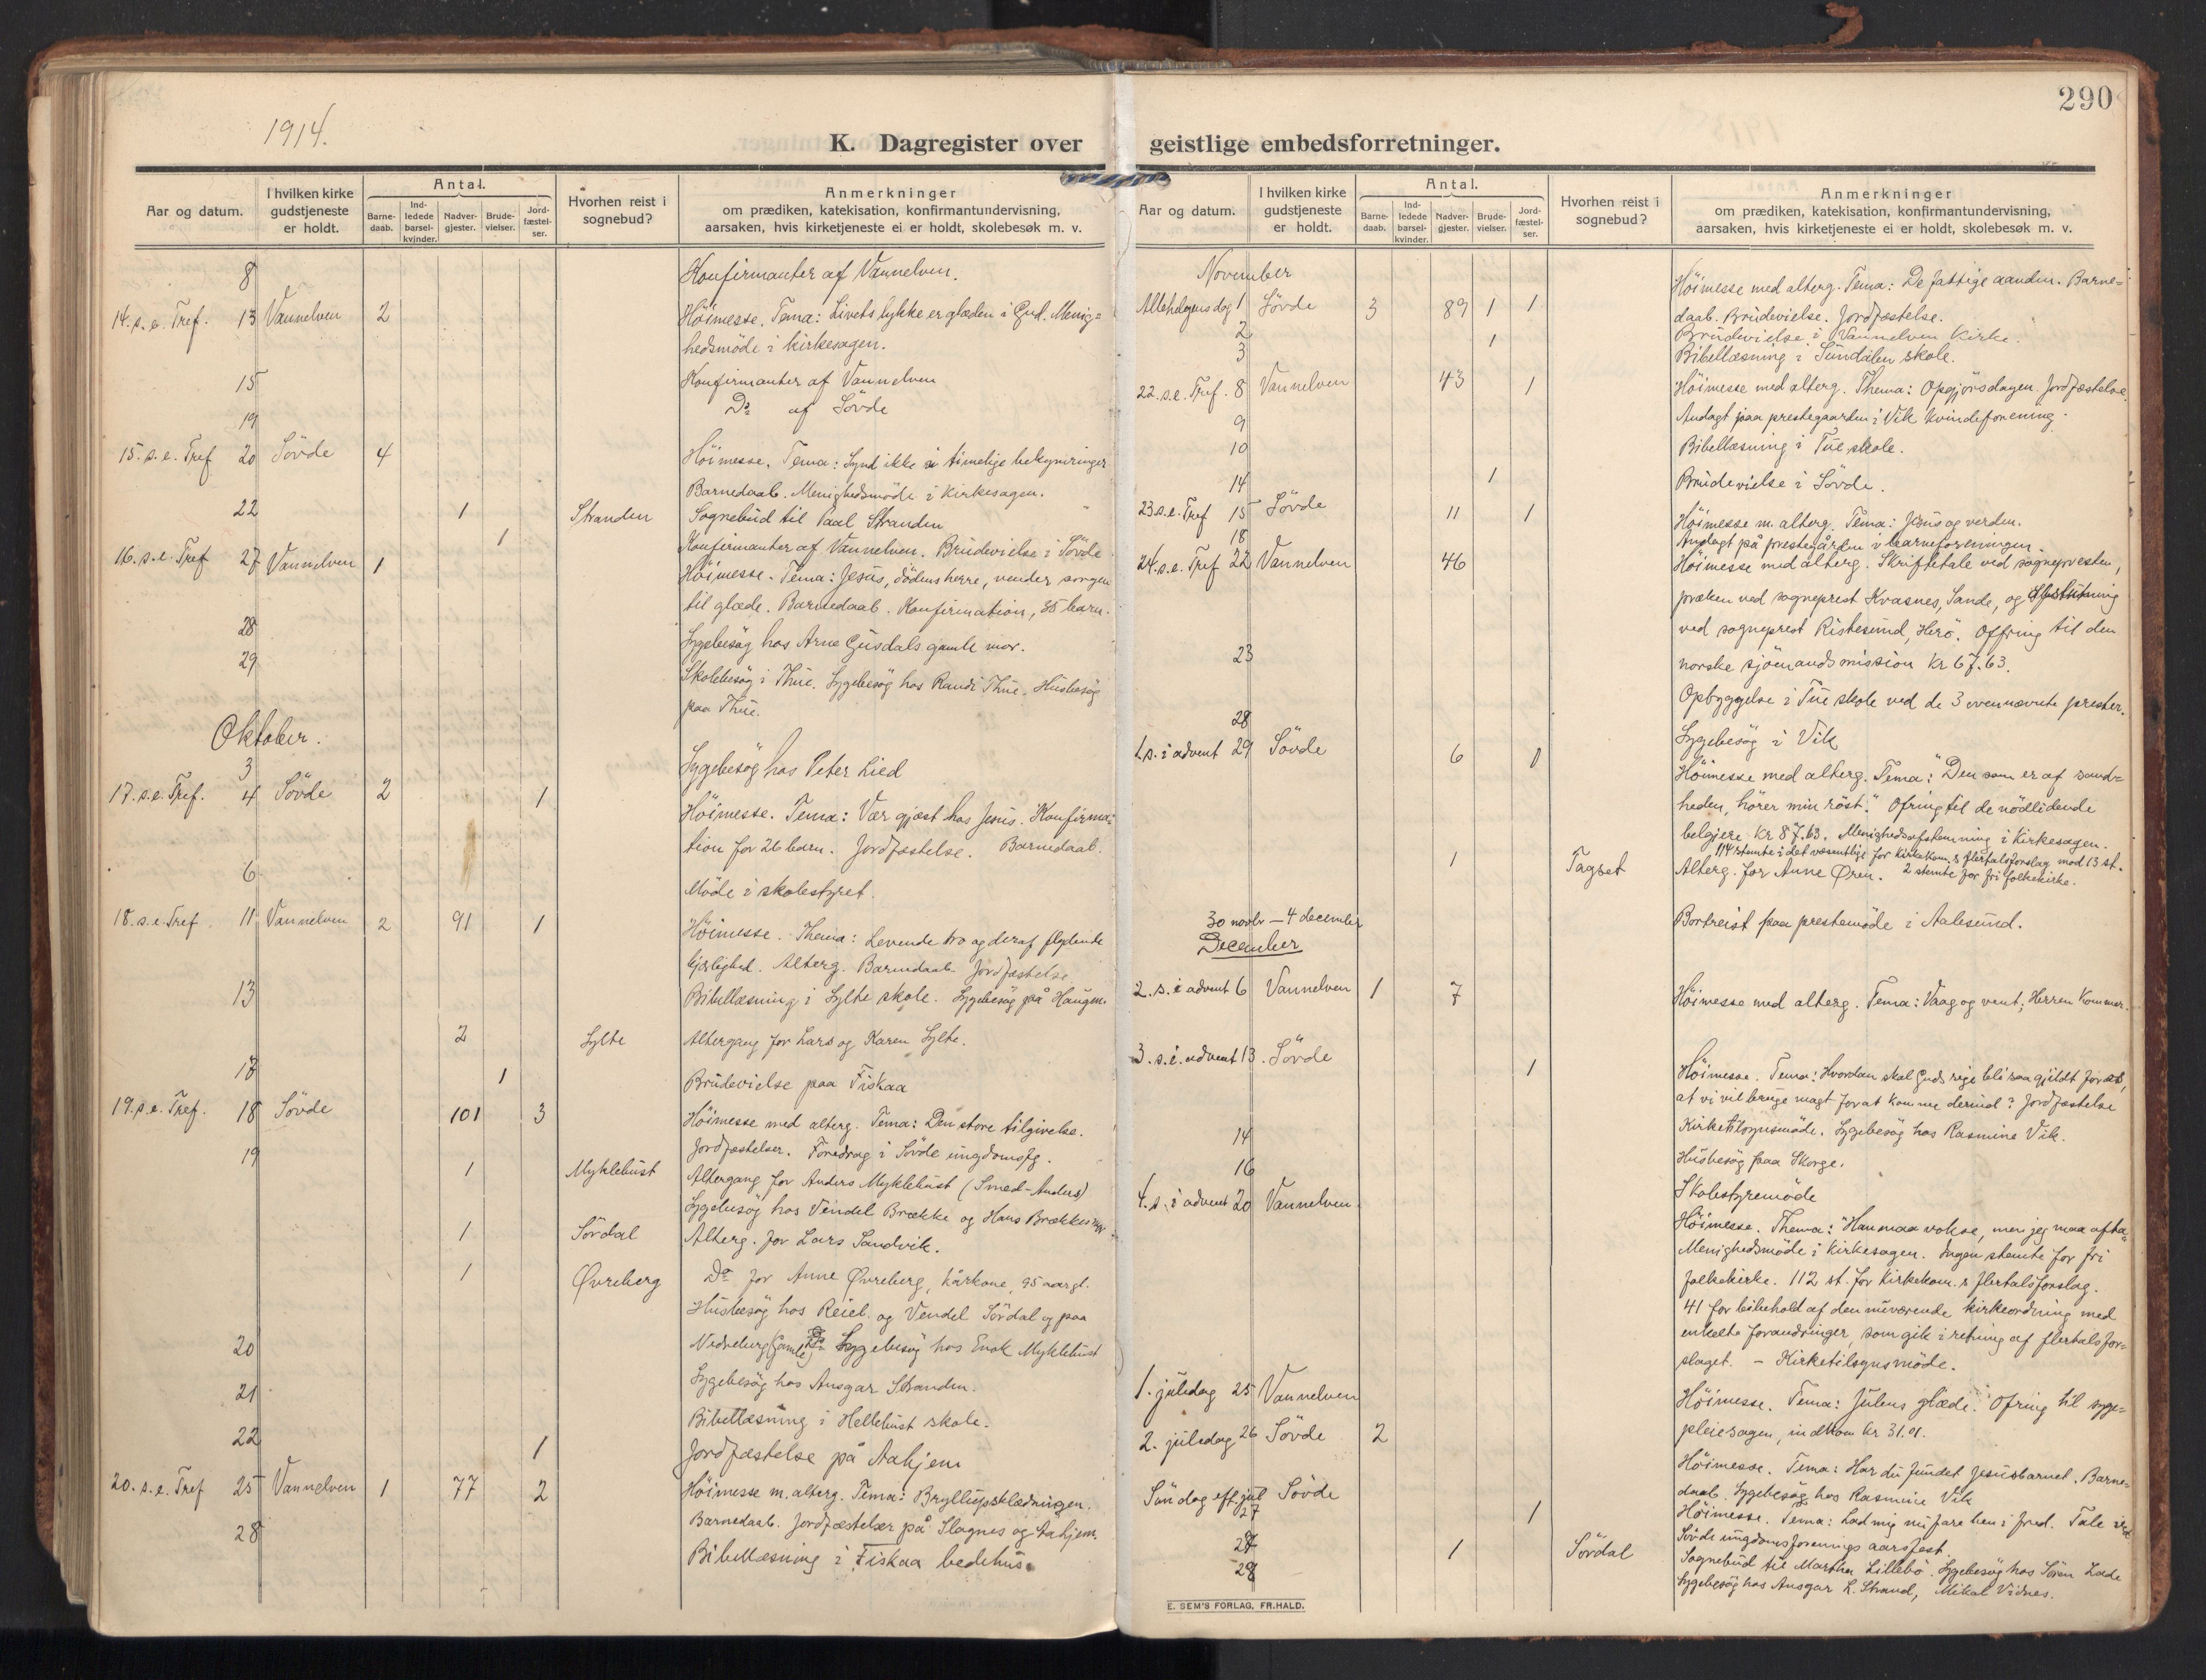 290
1914.
K. Dagregister over geistlige embedsforretninger.
Aar og datum. I hvilken kirke gudstjeneste er holdt. Antal. Barne-daab. Ind-ledede barsel-kvinder. Nadver-gjester. Brude-vielser. Jord-fæstel-ser. Hvorhen reist i sognebud? Anmerkninger om prædiken, katekisation, konfirmantundervisning, aarsaken, hvis kirketjeneste ei er holdt, skolebesøk m. v.
8 Konfirmanter af Vannelven.
14. s. e. Tref. 13 Vannelven 2 Höimesse. Tema: Livets lykke er glæden i Gud. Menig=
hedsmöde i kirkesagen.
15 Konfirmanter af Vannelven
19 Do af Sövde
15. s. e. Tref 20 Sövde 4 Höimesse. Tema: Synd ikke i timelige bekymringer
Barnedaab. Menighedsmöde i kirkesagen.
22 1 Stranden Sognebud til Paal Stranden
1 Konfirmanter af Vannelven. Brudevielse i Sövde
16. s. e. Tref 27 Vannelven 1 Höimesse. Tema: Jesus, dödens herre, vender sorgen
til glæde. Barnedaab. Konfirmation, 35 barn.
28 Sygebesög hos Arne Gusdals gamle mor.
29 Skolebesög i Thue. Sygebesög hos Randi Thue. Husbesög
paa Thue.
Oktober.
3 Sygebesög hos Peter Lied
17. s. e. Tref. 4 Sövde 2 1 Höimesse. Tema: Vær gjæst hos Jesus. Konfirma=
tion for 26 barn. Jordfæstelse. Barnedaab.
6 Möde i skolestyret.
18. s. e. Tref. 11 Vannelven 2 91 1 Höimesse. Thema: Levende tro og deraf flydende
kjærlighed. Alterg. Barnedaab. Jordfæstelse
13 Bibellæsning i Sylte skole. Sygebesög på Haugen.
2 Sylte Altergang for Lars og Karen Sylte.
1 Brudevielse paa Fiskaa
19. s. e. Tref. 18 Sövde 101 3 Höimesse med alterg. Tema: Den store tilgivelse.
Jordfæstelser. Foredrag i Sövde ungdomsfg.
19 1 Myklebust Altergang for Anders Myklebust (Smed-Anders)
Sygebesög hos Vendel Brække og Hans Brækkes mor.
1 Sördal Alterg. for Lars Sandvik.
1 Øvreberg Do for Anne Øvreberg, kårkone, 95 aar gl.
Husbesög hos Reiel og Vendel Sördal og paa
20 Nedreberg (Gamle) Sygebesög hos Enok Myklebust
21 Sygebesög hos Ansgar Stranden.
Bibellæsning i Hellebust skole.
22 1 Jordfæstelse på Aahjem
20. s. e. Tref 25 Vannelven 1 77 2 Höimesse m. alterg. Tema: Bryllupsklædningen.
Barnedaab. Jordfæstelser på Slagnes og Aahjem.
28 Bibellæsning i Fiskaa bedehus.
Aar og datum. I hvilken kirke gudstjeneste er holdt. Antal. Barne-daab. Ind-ledede barsel-kvinder. Nadver-gjester. Brude-vielser. Jord-fæstel-ser. Hvorhen reist i sognebud? Anmerkninger om prædiken, katekisation, konfirmantundervisning, aarsaken, hvis kirketjeneste ei er holdt, skolebesøk m. v.
November
Allehelgensdag 1 Sövde 3 89 1 1 Höimesse med alterg. Tema: De fattige aanden. Barne=
daab. Brudevielse. Jordfæstelse.
2 1 Brudevielse i Vannelven Kirke.
3 Bibellæsning i Sundalen skole.
22. s. e. Tref. 8 Vannelven 43 1 Höimesse med alterg. Thema: Opgjörsdagen. Jordfæstelse.
9 Andagt paa prestegaarden i Vik Kvindeforening.
10 Bibellæsning i Tue skole.
14 1 Brudevielse i Sövde.
23. s. e. Tref 15 Sövde 11 1 Höimesse m. alterg. Tema: Jesus og verden.
18 Andagt på prestegården i barneforeningen.
24. s. e. Tref 22 Vannelven 46 Höimesse med alterg. Skriftetale ved sogneprresten,
præken ved sogneprest Kvasnes, Sande, og
ved sogneprest Ristesund, Herö. Offring til den
23 norske sjömandsmission kr 67.63.
Opbyggelse i Tue skole ved de 3 ovennævnte prester.
28 Sygebesög i Vik
1. s. i advent 29 Sövde 6 Höimesse med alterg. Tema: "Den som er af sand=
heden, hörer min röst." Ofring til de nödlidende
belgiere kr 87.63. Menighedsafstemning i Kirkesagen.
114 stemte i det væsentlige for kirkekom.s flertalsforslag mod 13 st.
1 Tagset Alterg. for Anne Øren. 2 stemte for fri folkekirke.
30 novbr - 4 december Bortreist paa prestemöde i Aalesund.
December
2. s. i advent 6 Vannelven 1 7 Höimesse med alterg. Tema: Vaag og vent; Herren kommer.
3. s. i. advent 13. Sövde 1 Höimesse. Tema: Hvordan skal Guds rige bli saa gjildt for os,
at vi vil bruge magt for at komme derind? Jordfæstelse
14 Kirketilsynsmöde. Sygebesög hos Rasmine Vik.
Husbesög paa Skorge.
16 Skolestyremöde
4. s. i advent 20 Vannelven. Höimesse. Thema: "Han maa vokse, men jeg maa afta"
Menighedsmöde i kirkesagen. Ingen stemte for fri
folkekirke. 112 st. for Kirkekom.s flertalsforslag.
41 for bibehold af den nuværende kirkeordning med
enkelte forandringer, som gik i retning af flertalsfor=
slaget. - Kirketilsynsmöde.
1. juledag 25 Vannelven Höimesse. Tema: Julens glæde. Ofring til syge=
pleiesagen, indkom kr 31.01.
2. juledag 26 Sövde 2 Höimesse. Tema: Har du fundet Jesusbarnet. Barne=
daab. Sygebesög hos Rasmine Vik
Söndag eft. jul 27 Sövde 1 Höimesse. Tema: Lad mig nu fare hen i fred. Tale ved
Sövde ungdomsforenings aarsfest.
28 1 Sördal Sognebud til Martha Lillebö. Sygebesög hos Sören Lade
Sygebesög hos Ansgar L. Strand, Mikal Vidnes.
E. SEM'S FORLAG, FR.HALD.